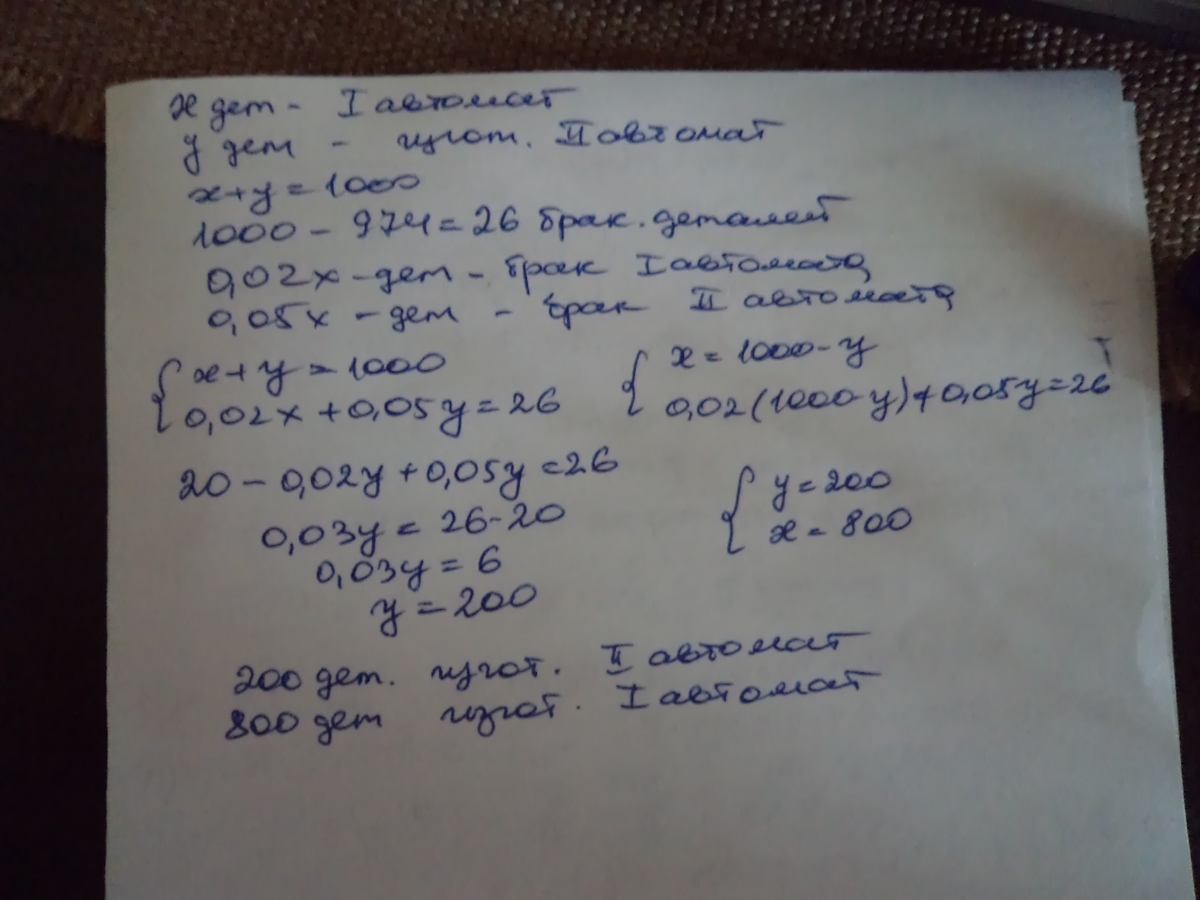 x дет - I автомат
y дет - изгот. II автомат
x+y=1000
1000-974=26 брак. деталей
0,02x-дет-брак I автомата
0,05x-дет-брак II автомата
{ x+y=1000
0,02x+0,05y=26
{ x=1000-y
0,02(1000-y)+0,05y=26
20-0,02y+0,05y=26
0,03y=26-20
0,03y=6
y=200
{ y=200
x=800
200 дет. изгот. II автомат
800 дет изгот. I автомат